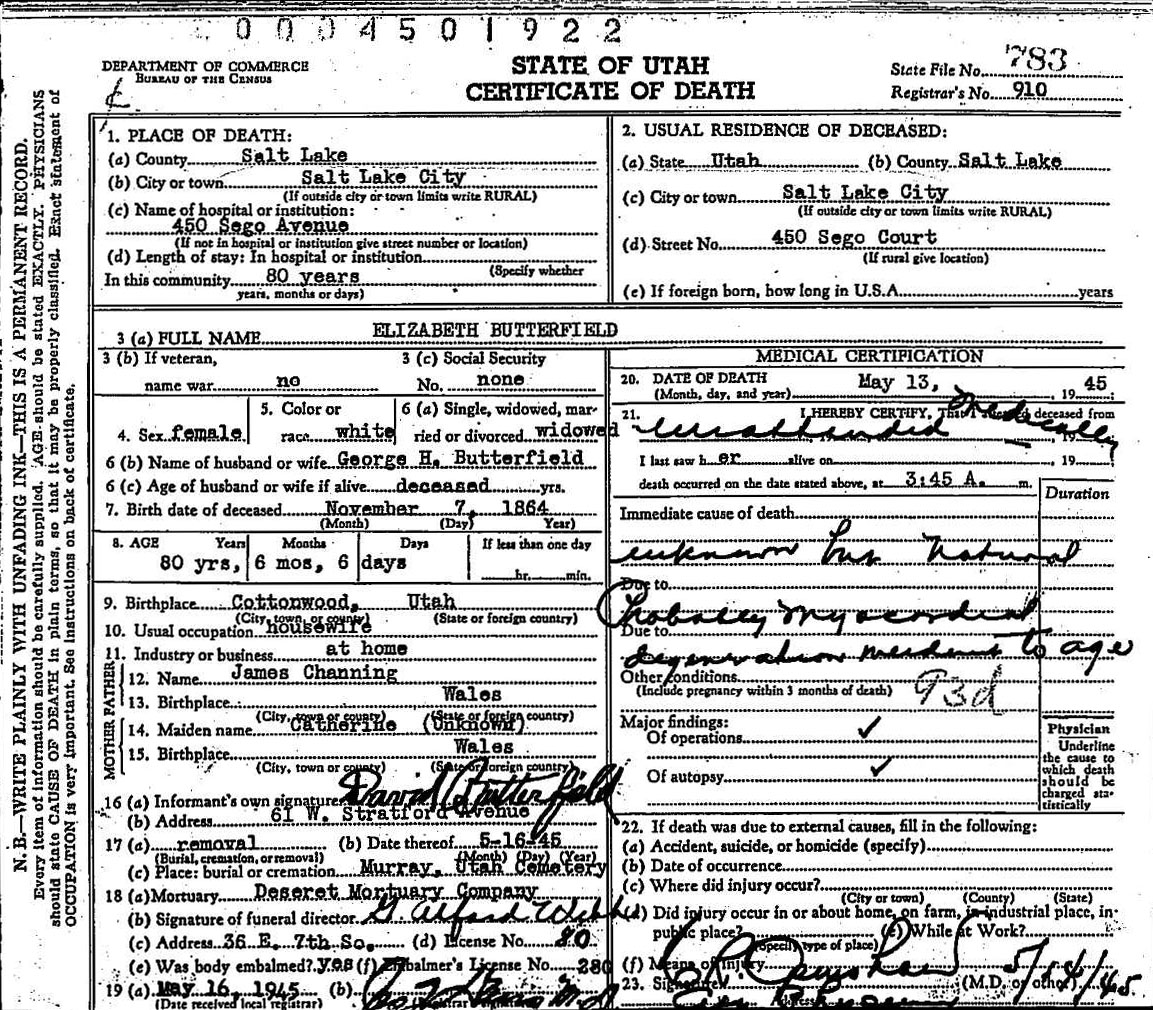 0 0 0 4 5 0 1 9 2 2
DEPARTMENT OF COMMERCE
BUREAU OF THE CENSUS
STATE OF UTAH
CERTIFICATE OF DEATH
State File No. 783
Registrar's No. 910
N. B.—WRITE PLAINLY WITH UNFADING INK—THIS IS A PERMANENT RECORD.
Every item of information should be carefully supplied. AGE should be stated EXACTLY. PHYSICIANS
should state CAUSE OF DEATH in plain terms, so that it may be properly classified. Exact statement of
OCCUPATION is very important. See instructions on back of certificate.
1. PLACE OF DEATH:
(a) County Salt Lake
(b) City or town Salt Lake City
(If outside city or town limits write RURAL)
(c) Name of hospital or institution:
450 Sego Avenue
(If not in hospital or institution give street number or location)
(d) Length of stay: In hospital or institution
(Specify whether
In this community 80 years
years, months or days)
2. USUAL RESIDENCE OF DECEASED:
(a) State Utah (b) County Salt Lake
(c) City or town Salt Lake City
(If outside city or town limits write RURAL)
(d) Street No. 450 Sego Court
(If rural give location)
(e) If foreign born, how long in U.S.A. years
3 (a) FULL NAME ELIZABETH BUTTERFIELD
3 (b) If veteran, 3 (c) Social Security
name war no No. none
4. Sex female 5. Color or race white 6 (a) Single, widowed, married or divorced widowed
6 (b) Name of husband or wife George H. Butterfield
6 (c) Age of husband or wife if alive deceased yrs.
7. Birth date of deceased November 7, 1864
(Month) (Day) Year)
8. AGE Years Months Days If less than one day
80 yrs, 6 mos, 6 days hr. min.
9. Birthplace Cottonwood, Utah
(City, town, or county) (State or foreign country)
10. Usual occupation housewife
11. Industry or business at home
FATHER
12. Name James Channing
13. Birthplace Wales
(City, town or county) (State or foreign country)
MOTHER
14. Maiden name Catherine (Unknown)
15. Birthplace Wales
(City, town or county) (State or foreign country)
16 (a) Informant's own signature David Butterfield
(b) Address 61 W. Stratford Avenue
17 (a) removal (b) Date thereof 5-16-45
(Burial, cremation, or removal) (Month) (Day) (Year)
(c) Place: burial or cremation Murray, Utah Cemetery
18 (a) Mortuary Deseret Mortuary Company
(b) Signature of funeral director
(c) Address 36 E. 7th So. (d) License No. 20
(e) Was body embalmed? yes (f) Embalmer's License No. 280
19 (a) May 16, 1945 (b)
(Date received local registrar)
MEDICAL CERTIFICATION
20. DATE OF DEATH May 13, 1945
(Month, day, and year)
21. I HEREBY CERTIFY, That I attended deceased from
unattended medically 19
I last saw her alive on , 19
death occurred on the date stated above, at 3:45 A. m.
Duration
Immediate cause of death
unknown but natural
Due to
Probably myocardial
Due to
degeneration incident to age
Other conditions
(Include pregnancy within 3 months of death) 93d
Major findings:
Of operations ✓
Of autopsy ✓
Physician
Underline
the cause to
which death
should be
charged sta-
tistically
22. If death was due to external causes, fill in the following:
(a) Accident, suicide, or homicide (specify)
(b) Date of occurrence
(c) Where did injury occur?
(City or town) (County) (State)
(d) Did injury occur in or about home, on farm, in industrial place, in
public place? (e) While at Work?
(Specify type of place)
(f) Means of injury
23. Signature (M.D. or other) 5/14/45
Address